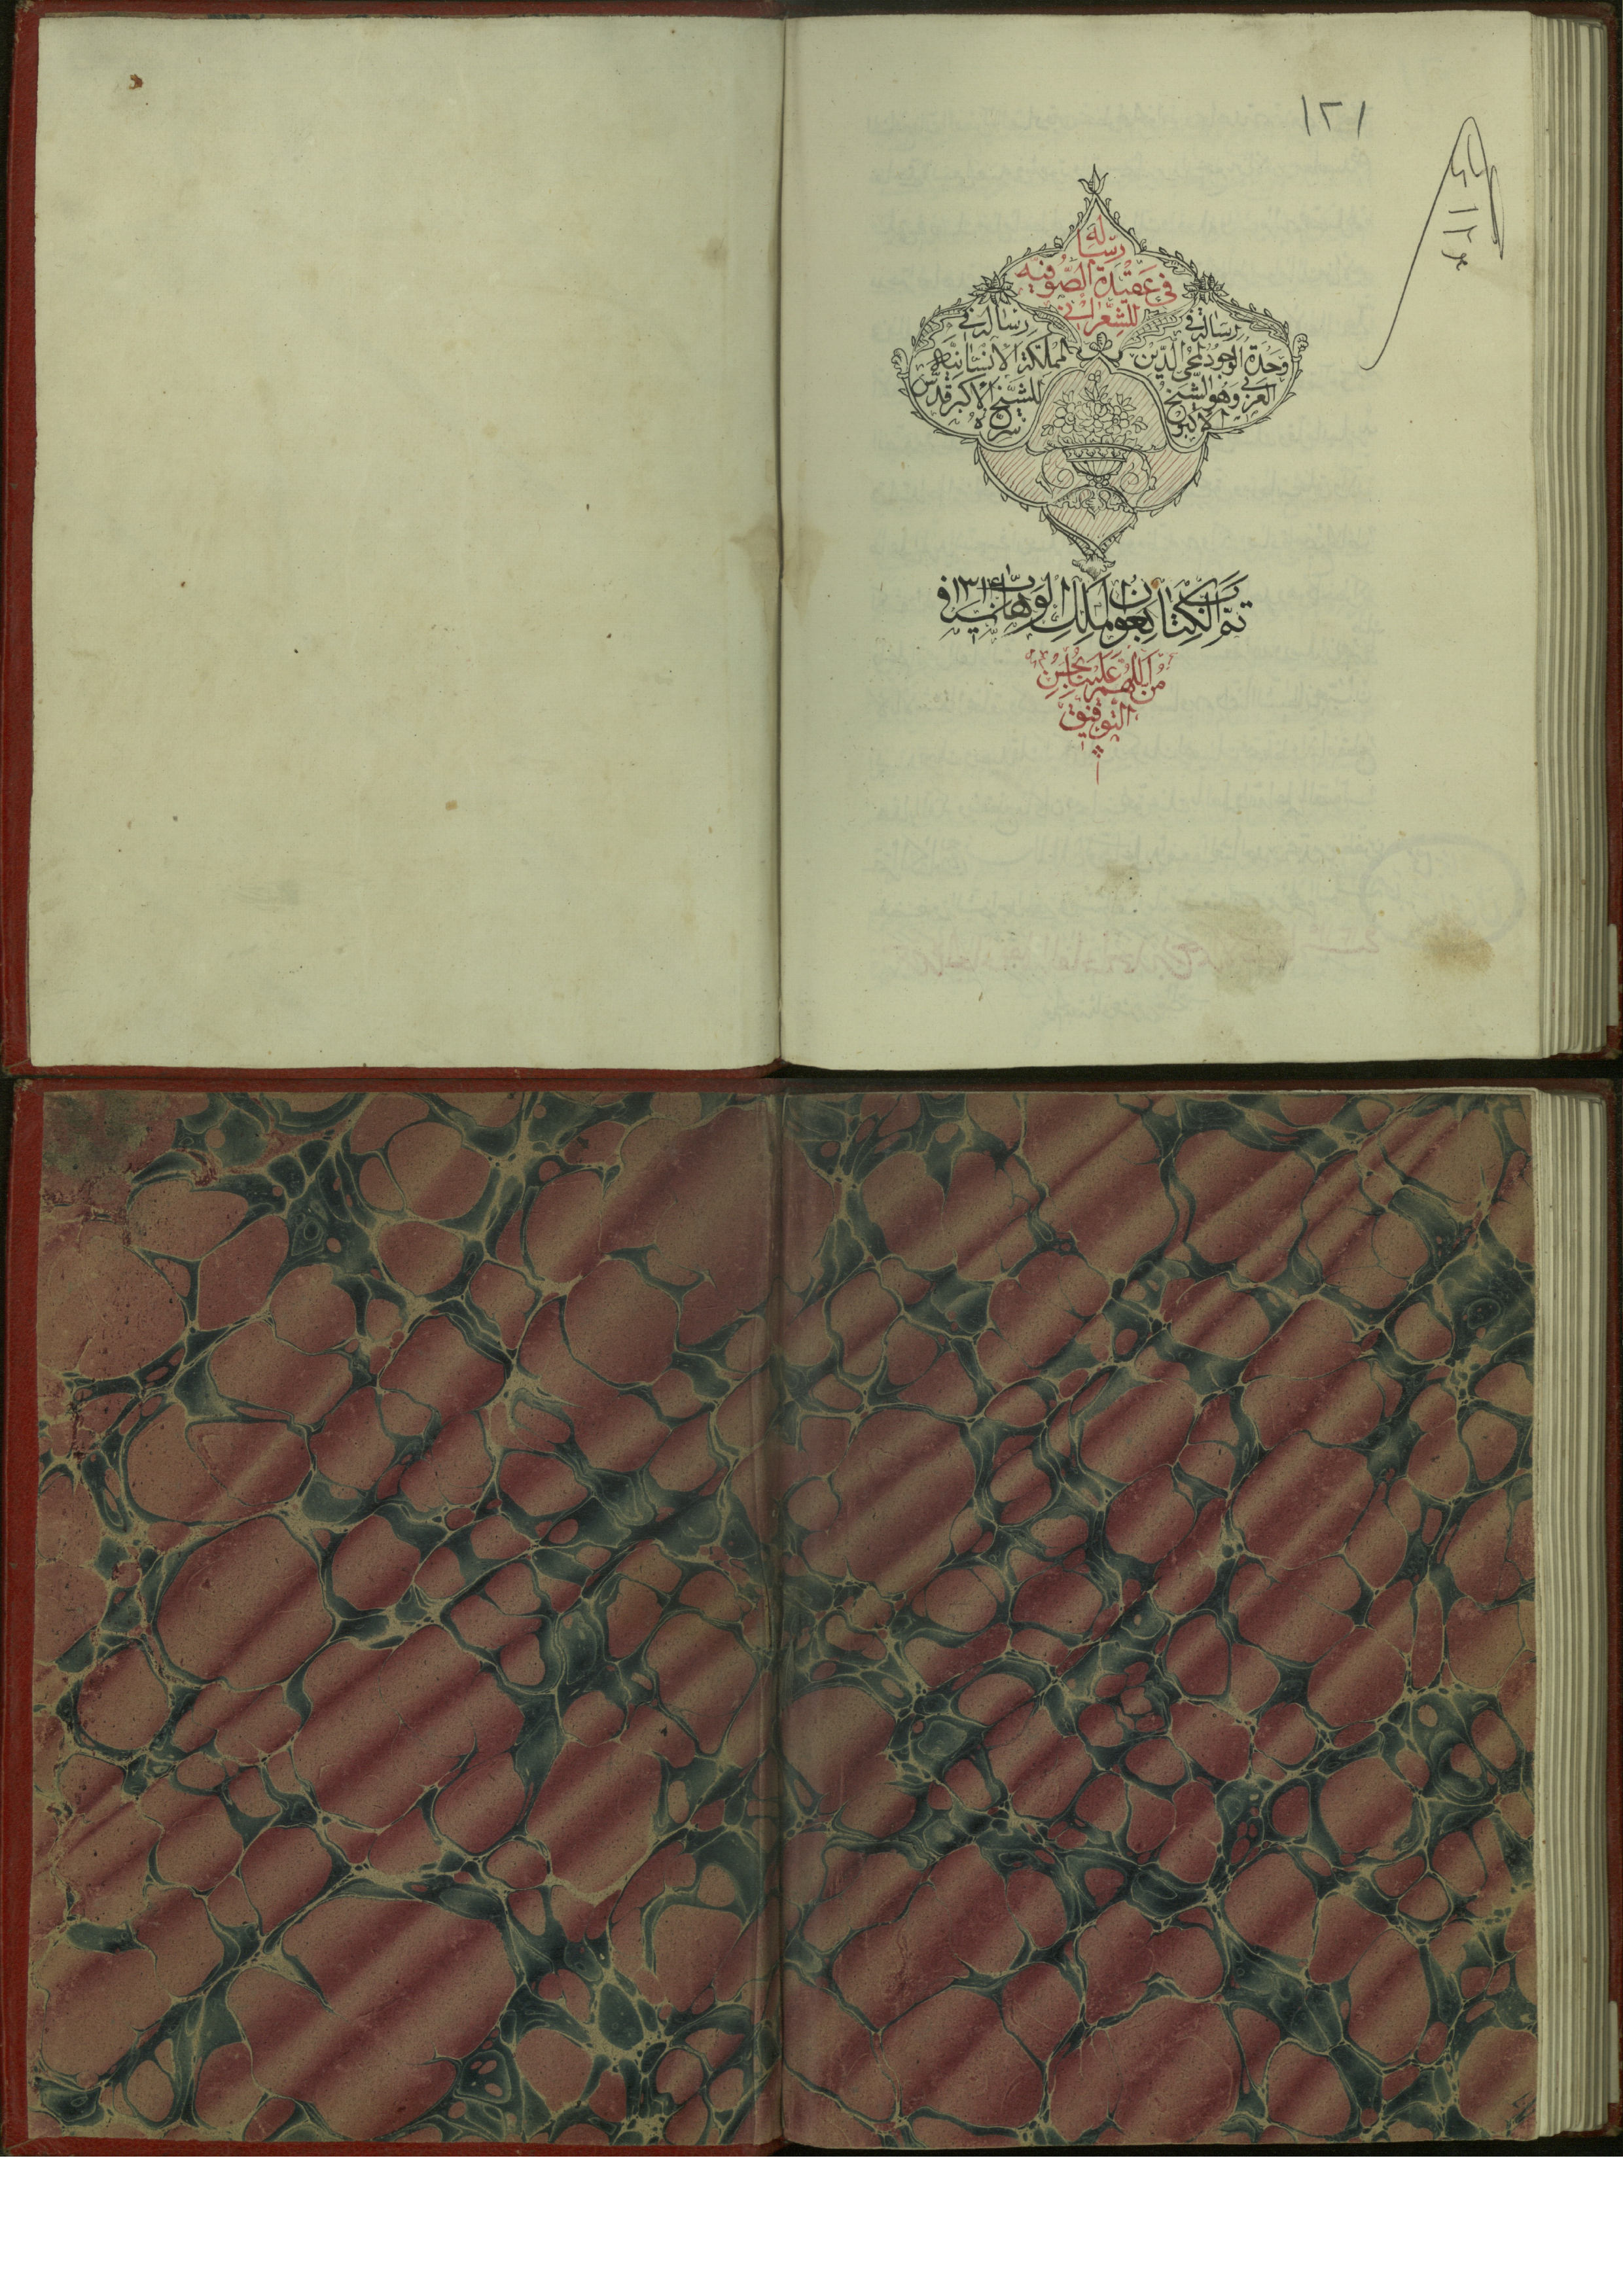 ١٢١
رسالة
في عقيدة الصوفيه
للشعراني
رسالة في
وحدة الوجود لمحي الدين
العربي وهو الشيخ
الاكبر
رسالة في
المملكة الانسانية
للشيخ الاكبر قدس
سره
تم الكتاب بعون الملك الوهاب في ١٣١٤
من اللهم علينا بحسن
التوفيق